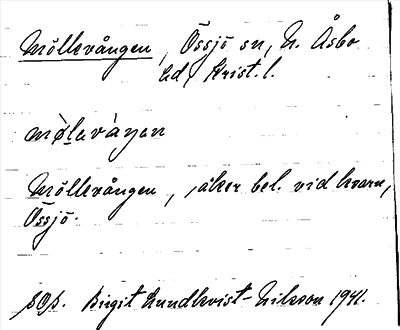 Möllevången, Össjö sn, N. Åsbo
hd, Krist. l.
Möllevången, åker bel. vid kvarn,
Össjö.
Birgit Lundkvist-Nilsson 1941.